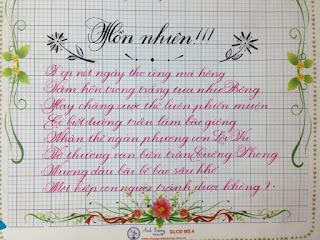 Hồn nhiên!!!
Đẹp nét ngây thơ ửng má hồng
Tâm hồn trong trắng tựa như Bông
Hay chăng ước thế luôn nhiên muôn
bụi đường trần lắm bão giông
Nhận thế ngàn phương ơn
thương vạn bến trần Cuồng Phong
Nương dâu bãi bể bao sầu khổ
Một kiếp con người tránh được không?
Ánh Dương
GLCĐ MS 4